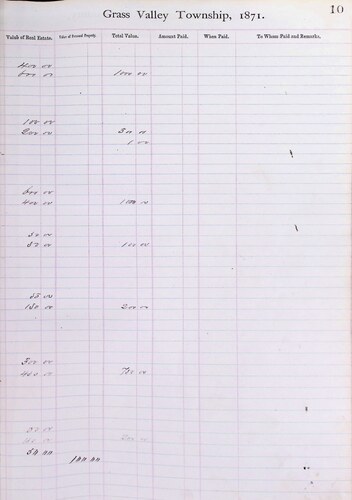 Grass Valley Township, 1871.
10
Value of Real Estate. Value of Personal Property. Total Value. Amount Paid. When Paid. To Whom Paid and Remarks.
400 00
600 00 1000 00
100 00
200 00 300 00
1 00
600 00
400 00 1000 00
50 00
50 00 100 00
150 00 200 00
300 00
400 00 700 00
54 00
140 00